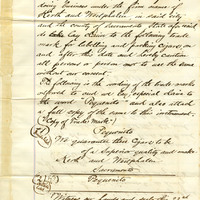 doing business under the firm name of
Roth and Westphalen, in said City
and the County of Sacramento State aforesaid
to take lay claim to the following trade
mark for labelling and packing Cigars, on
and after this date and
all persons a person not to use the same
without our consent.
The following is the wording of the trade mark
referred to and we Especial claim to
the word "Pequenito" and also attach
a full copy of the same to this instrument,
(Copy of Trade Mark)
Pequenito
We guarantee these Cigars to be
of a Superior quality and make
Roth and Westphalen
Sacramento
Pequenito
Witness our hands and seals this 22nd